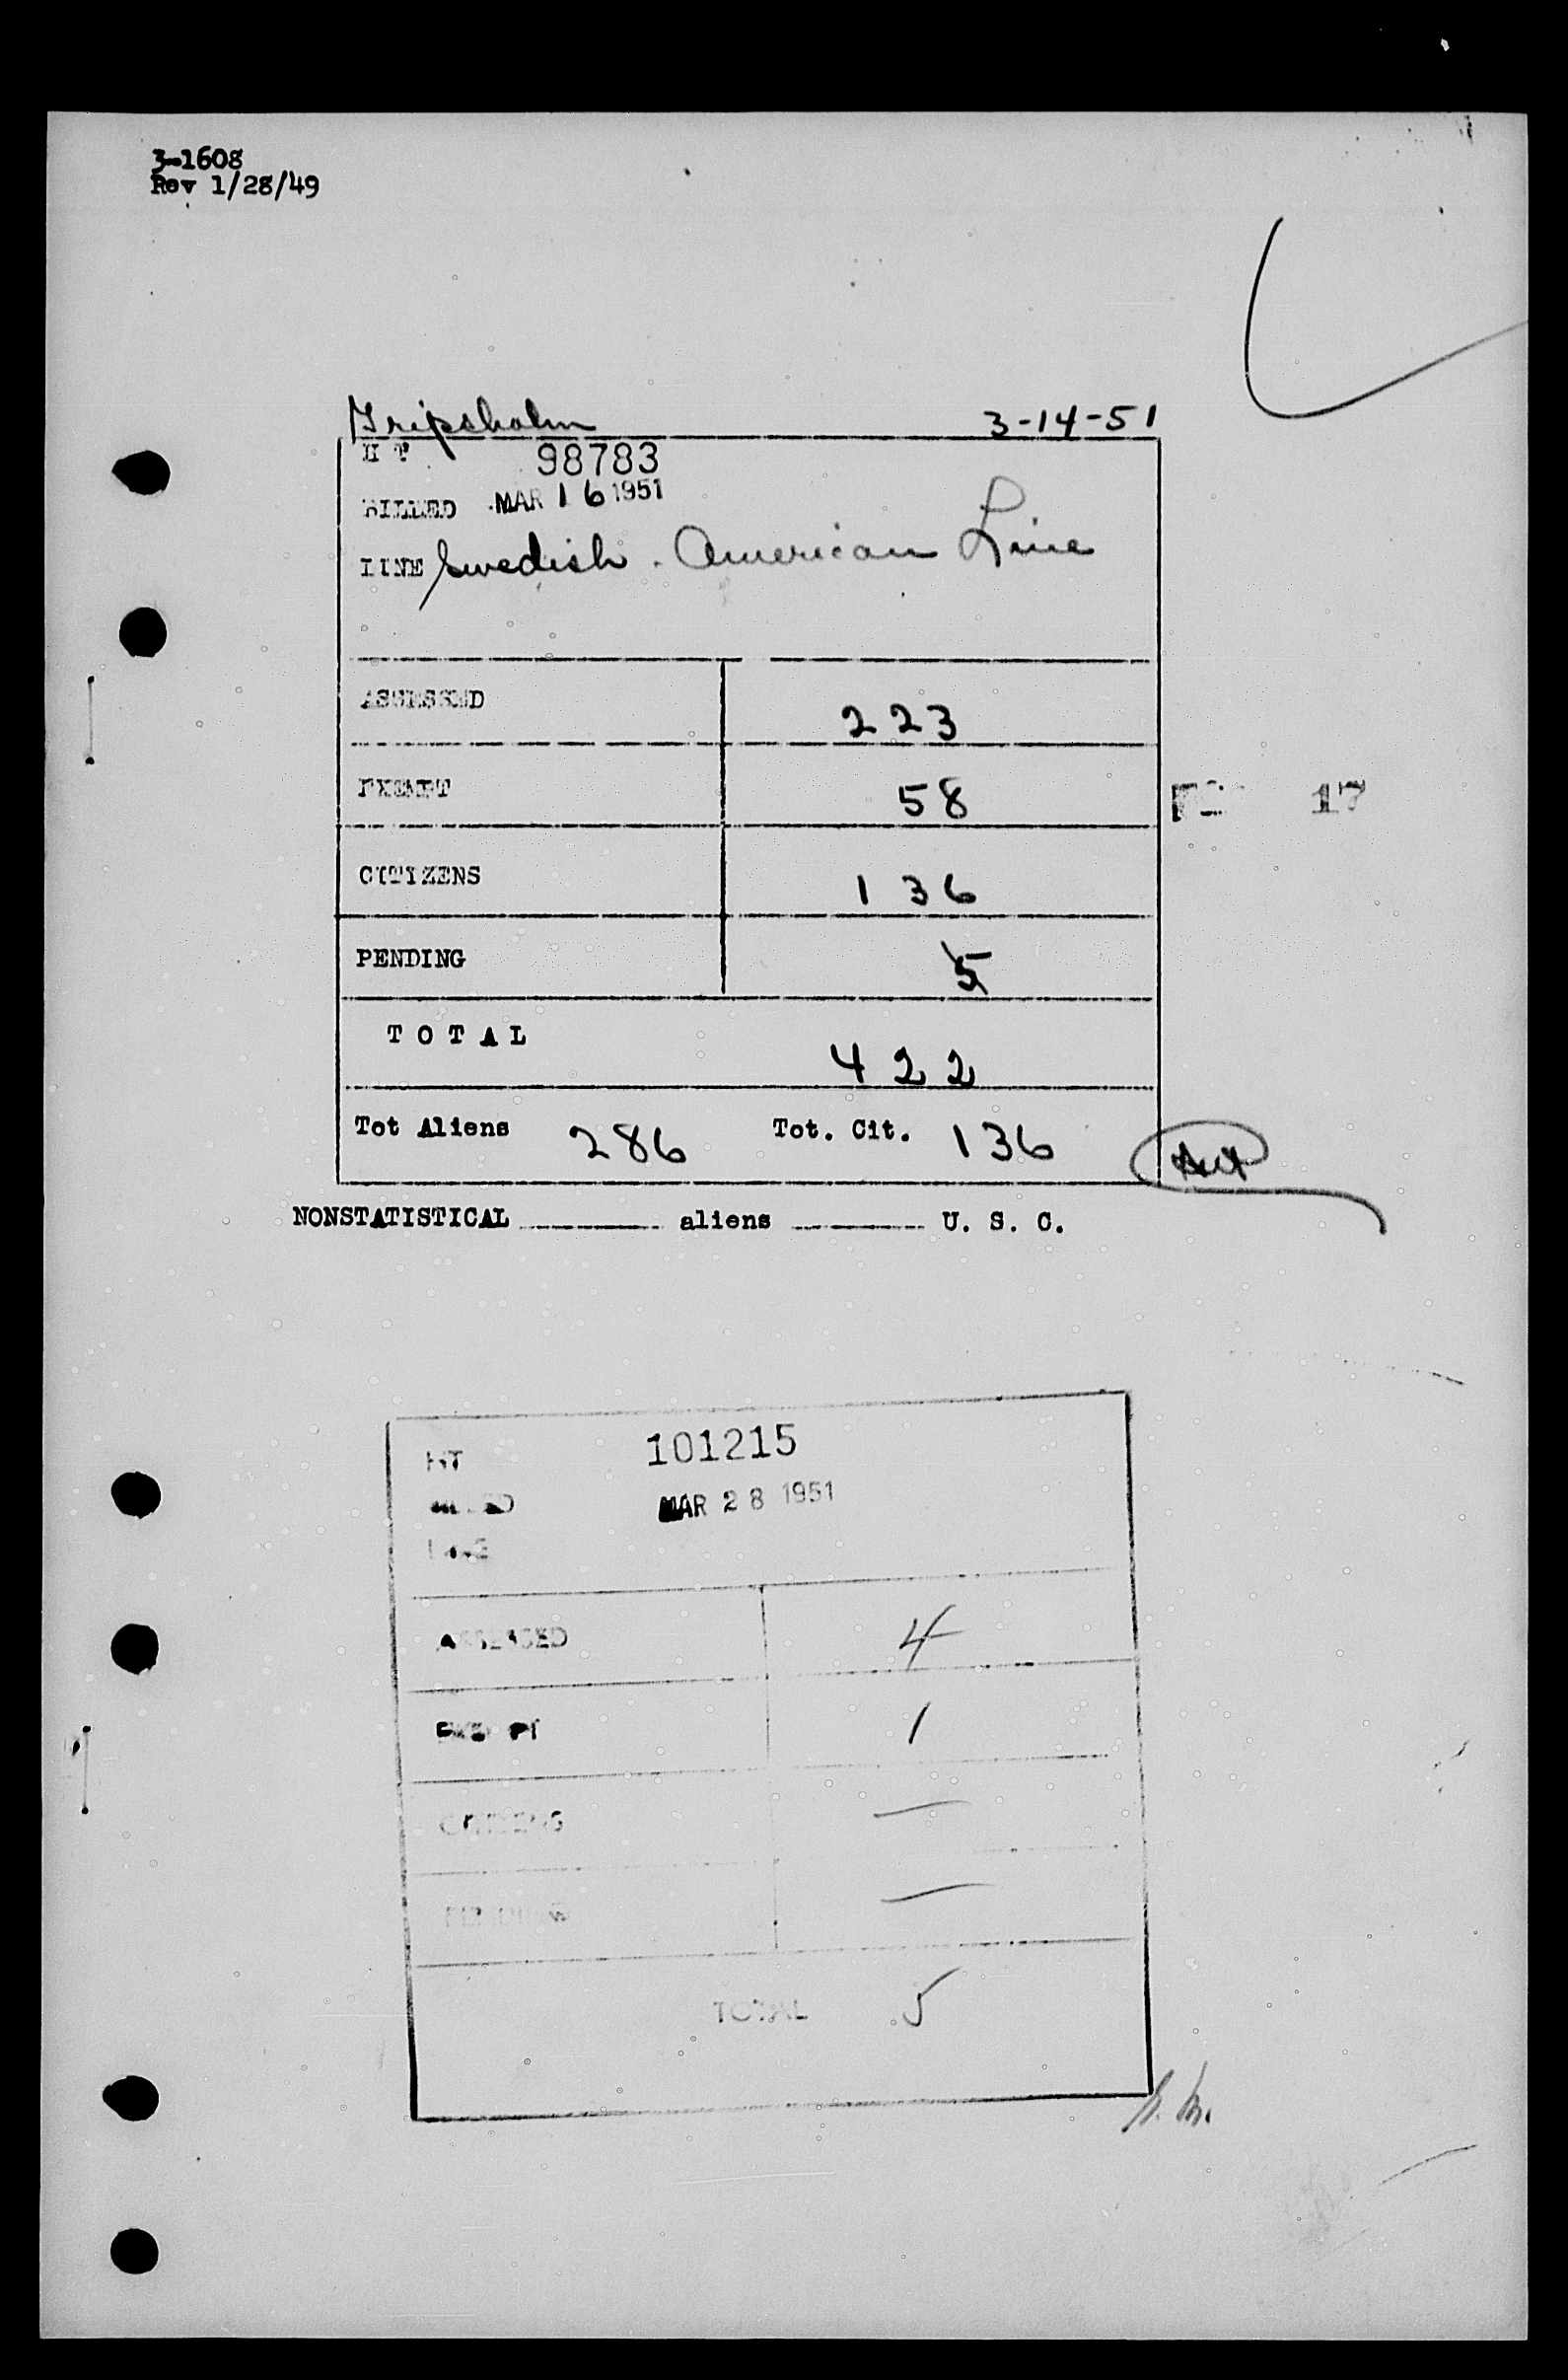 3-1608
Rev 1/28/49
Gripsholm 3-14-51
H T 98783
BILLED MAR 16 1951
LINE Swedish American Line
ASSESSED 223
EXEMPT 58
17
CITIZENS 136
PENDING 5
TOTAL 422
Tot Aliens 286 Tot. Cit. 136
NONSTATISTICAL aliens U. S. C.
HT 101215
BILLED MAR 28 1951
LINE
ASSESSED 4
EXEMPT 1
CITIZENS —
PENDING —
TOTAL 5